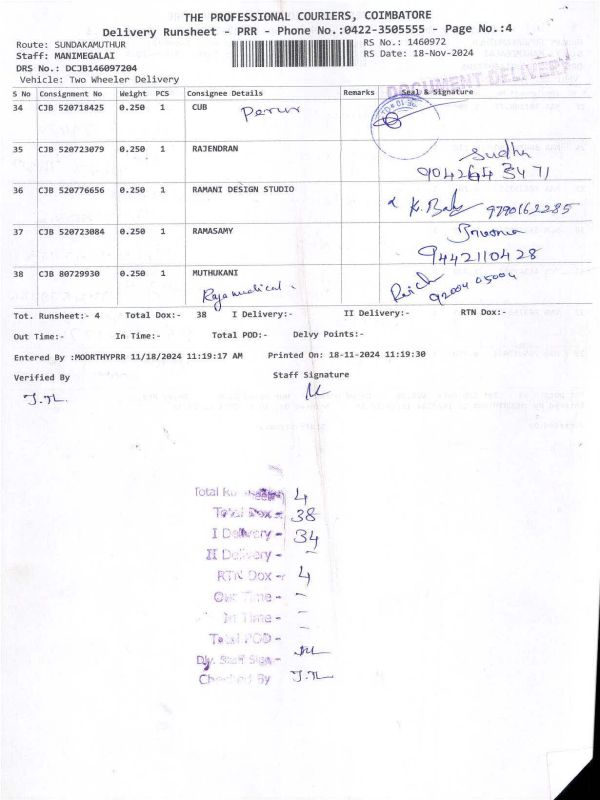 THE PROFESSIONAL COURIERS, COIMBATORE
Delivery Runsheet - PRR - Phone No.:0422-3505555 - Page No.:4
Route: SUNDAKAMUTHUR RS No.: 1460972
Staff: MANIMEGALAI RS Date: 18-Nov-2024
DRS No.: DCJB146097204
Vehicle: Two Wheeler Delivery
DOCUMENT DELIVERY
S No Consignment No Weight PCS Consignee Details Remarks Seal & Signature
34 CJB 520718425 0.250 1 CUB Perur
35 CJB 520723079 0.250 1 RAJENDRAN Sudha
9042643471
36 CJB 520776656 0.250 1 RAMANI DESIGN STUDIO K. Baby 9790162285
37 CJB 520723084 0.250 1 RAMASAMY
9442110428
38 CJB 80729930 0.250 1 MUTHUKANI
Raja medical 92004 05004
Tot. Runsheet:- 4 Total Dox:- 38 I Delivery:- II Delivery:- RTN Dox:-
Out Time:- In Time:- Total POD:- Delvy Points:-
Entered By :MOORTHYPRR 11/18/2024 11:19:17 AM Printed On: 18-11-2024 11:19:30
Verified By Staff Signature
Total Runsheet - 4
Total Dox - 38
I Delivery - 34
II Delivery - -
RTN Dox - 4
Out Time - -
In Time - -
Total POD -
Dly. Staff Sign -
Checked By